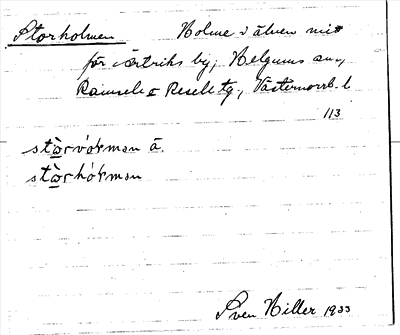 Storholmen Holme i älven mitt
för västriks by, Helgums sn,
Ramsele o Resele tg, Västernorrl. l
113
stòrvókman å.
stòrhókman
Sven Hiller 1933